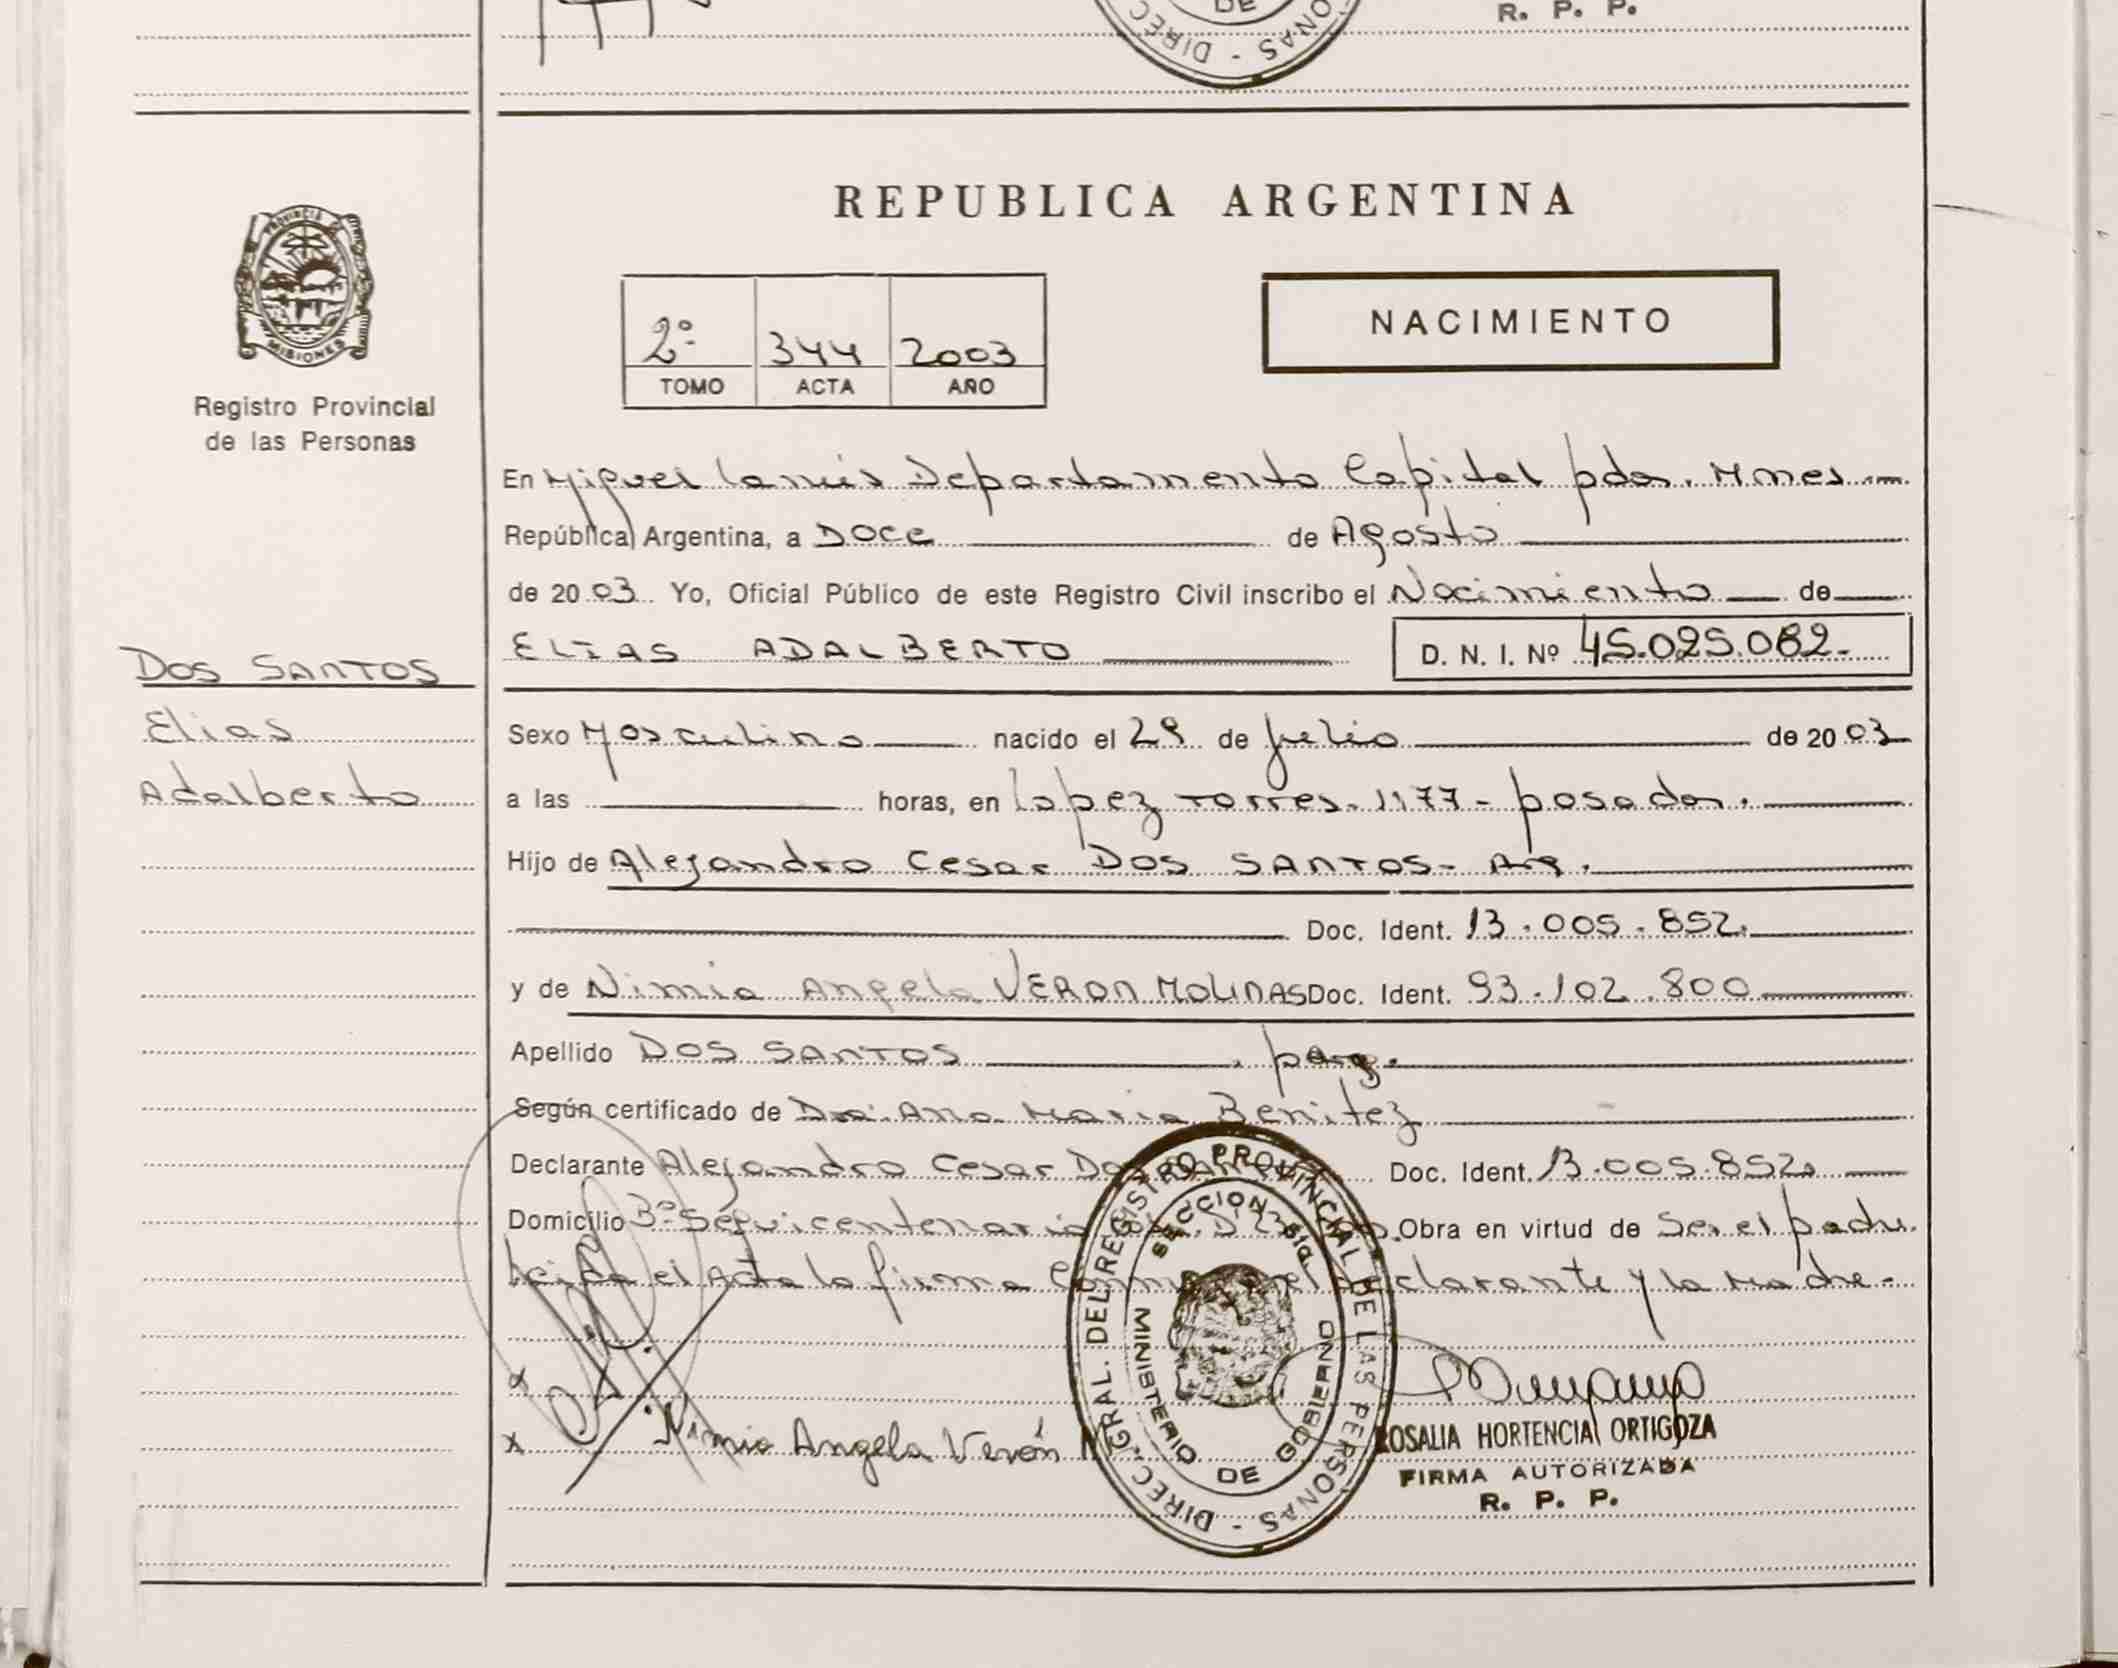 DE
DIREC
ONAS -
R. P. P.
PROVINCIA DE
MISIONES
Registro Provincial
de las Personas
REPUBLICA ARGENTINA
2º 344 2003
TOMO ACTA AÑO
NACIMIENTO
En Miguel Lanús Departamento Capital pdas. Mnes
República Argentina, a Doce de Agosto
de 2003 Yo, Oficial Público de este Registro Civil inscribo el Nacimiento de
ELIAS ADALBERTO D. N. I. Nº 45.025.082.
DOS SANTOS
Elias
Adalberto
Sexo Masculino nacido el 29 de julio de 2003
a las horas, en Lopez Torres. 1177 - posadas.
Hijo de Alejandro Cesar DOS SANTOS - Arg.
Doc. Ident. 13.005.852.
y de Nimia Angela VERON MOLINAS Doc. Ident. 93.102.800
Apellido DOS SANTOS parag.
Según certificado de Dra. Ana Maria Benitez
Declarante Alejandro Cesar Dos Doc. Ident. 13.005.852.
Domicilio Bº Sequicentenario Obra en virtud de Ser el padre.
el Acta la firma el declarante y la Madre -
x
x Nimia Angela Verón M
DIREC. GRAL. DEL REGISTRO PROVINCIAL DE LAS PERSONAS -
SECCION 6ta.
MINISTERIO DE GOBIERNO
ROSALIA HORTENCIA ORTIGOZA
FIRMA AUTORIZADA
R. P. P.